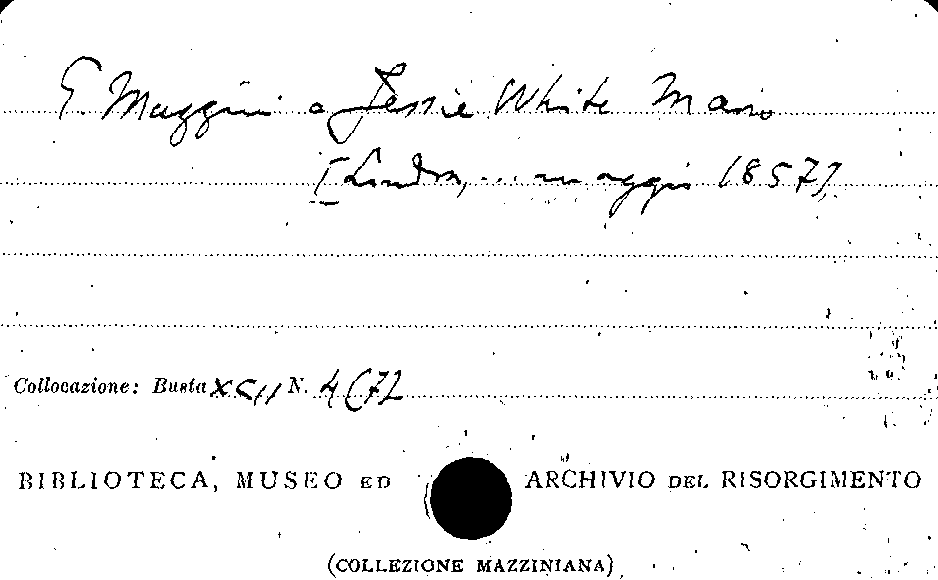 G. Mazzini a Jessie White Mario
[Londra, ... maggio 1857]
Collocazione: Busta XCII N. 4(72
BIBLIOTECA, MUSEO ED ARCHIVIO DEL RISORGIMENTO
(COLLEZIONE MAZZINIANA)